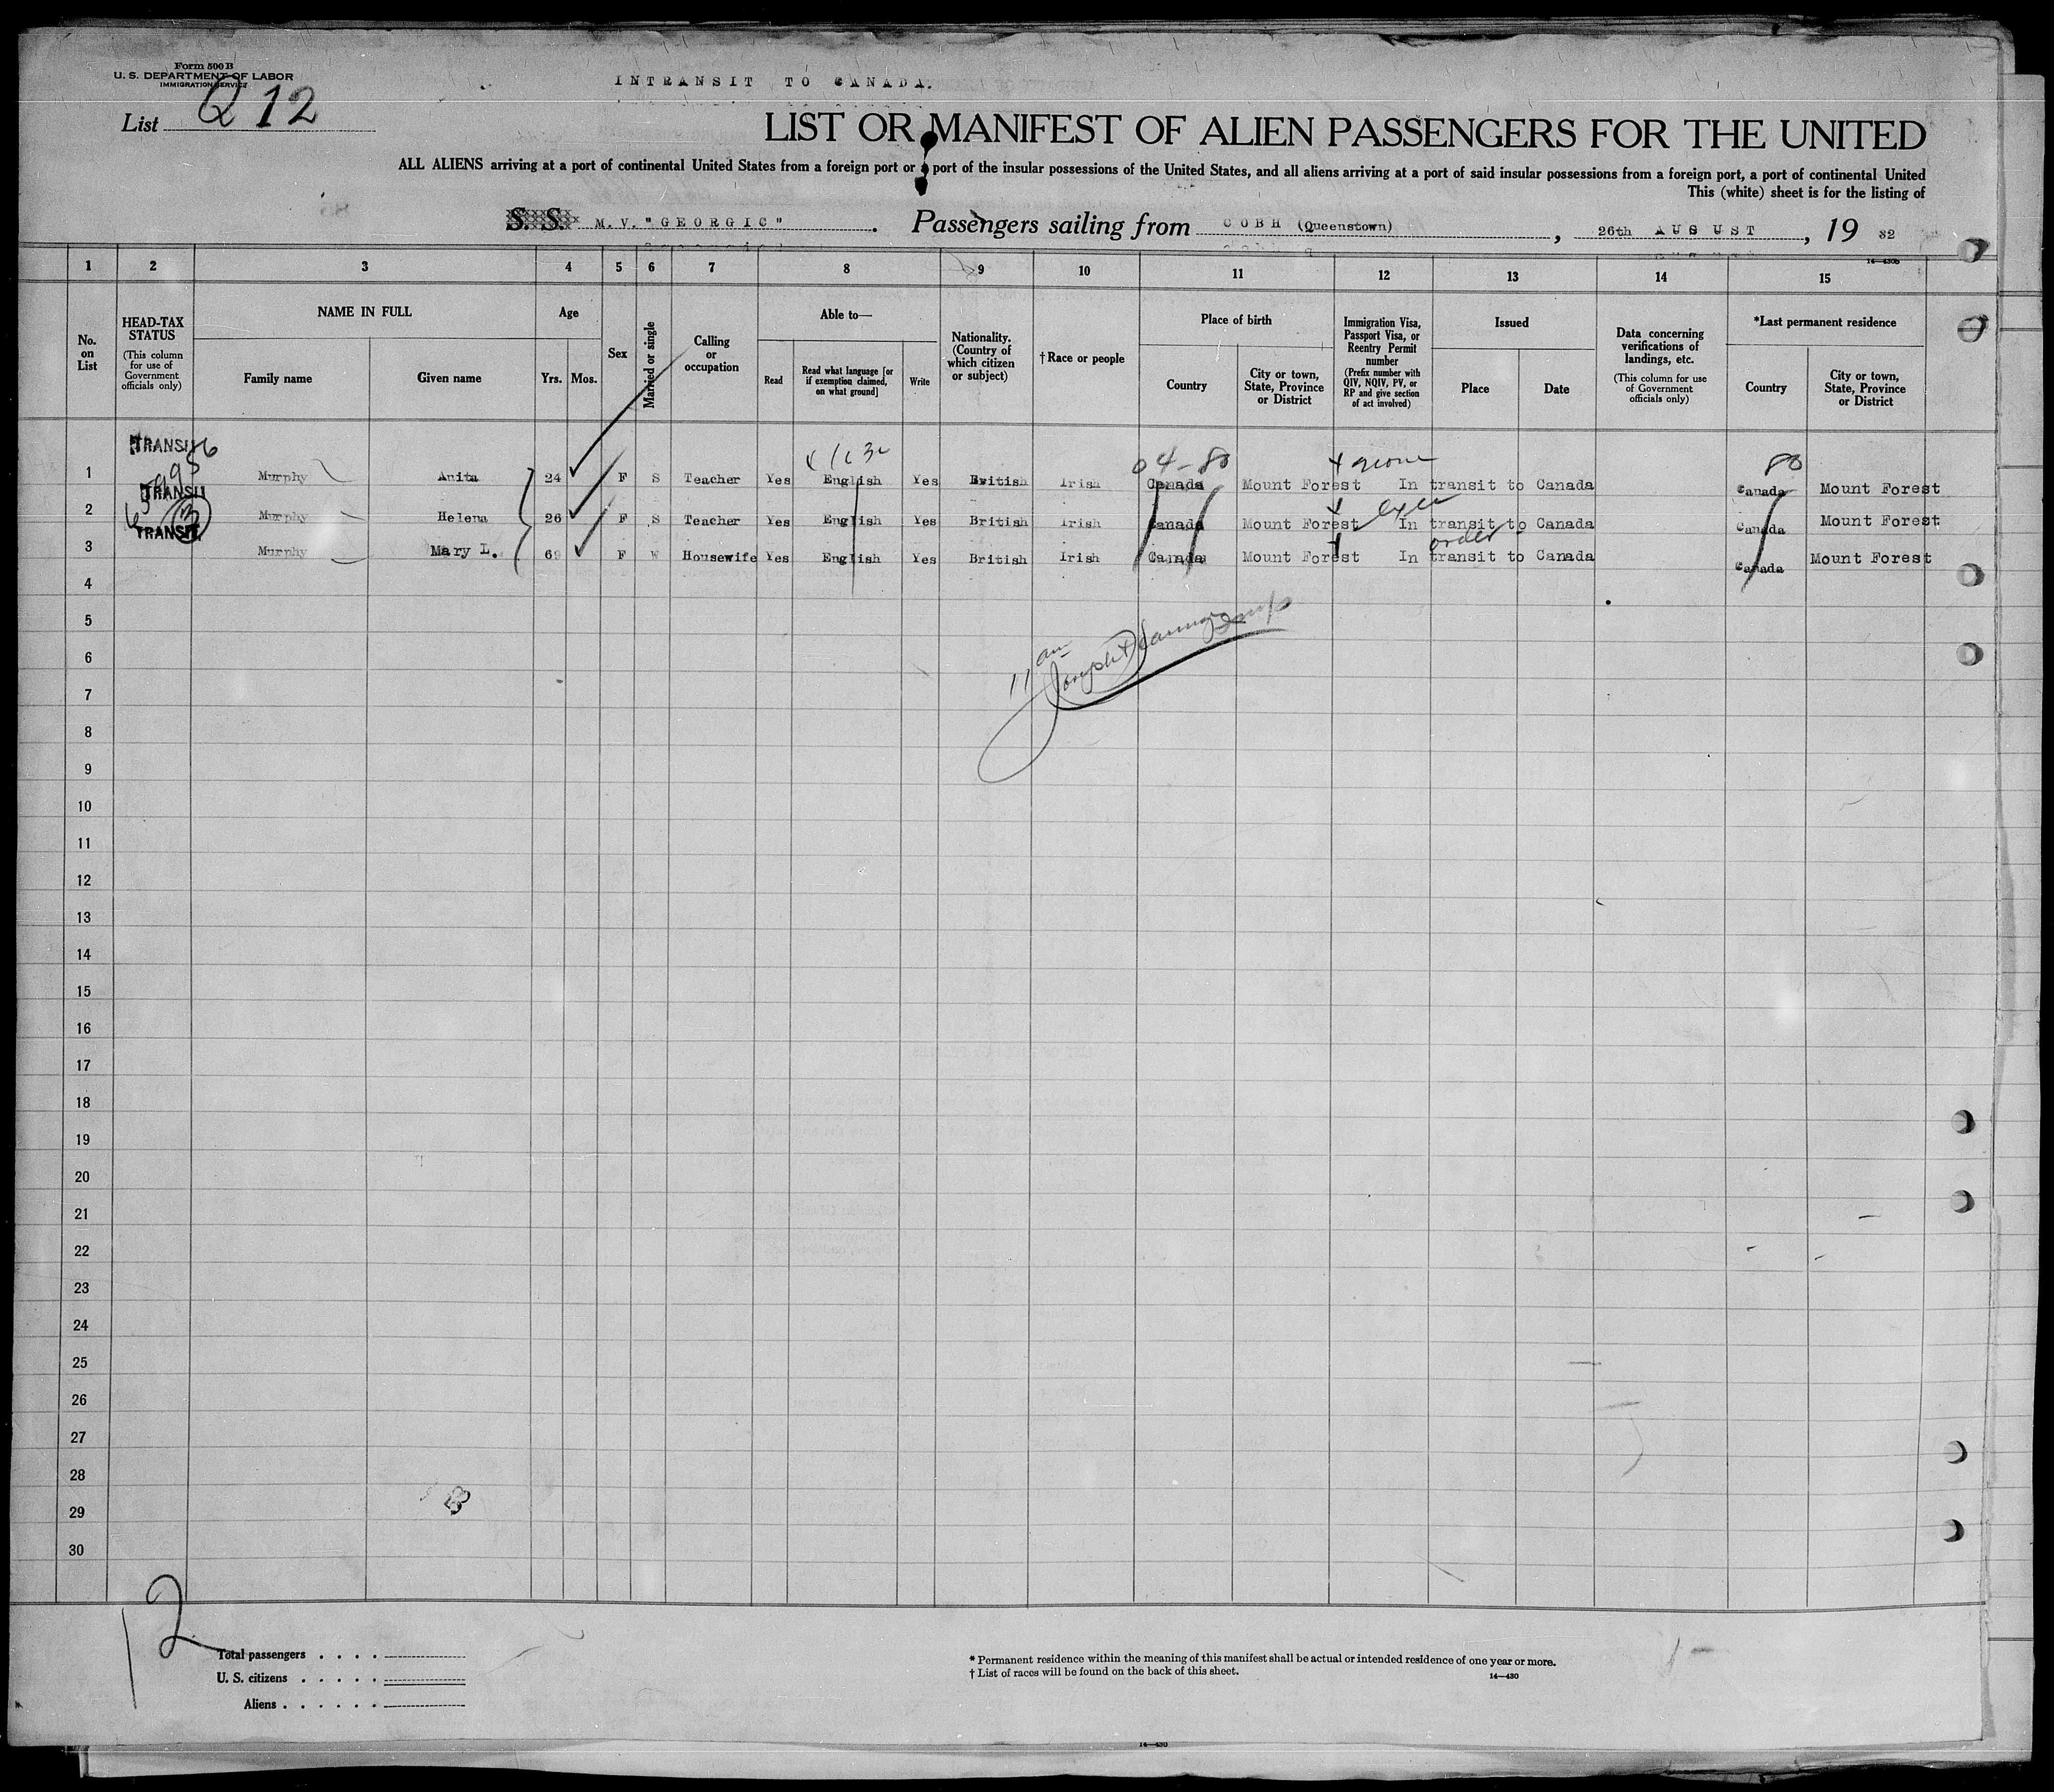 Form 500 B
U. S. DEPARTMENT OF LABOR
IMMIGRATION SERVICE
INTRANSIT TO CANADA.
List Q 12
LIST OR MANIFEST OF ALIEN PASSENGERS FOR THE UNITED
ALL ALIENS arriving at a port of continental United States from a foreign port or a port of the insular possessions of the United States, and all aliens arriving at a port of said insular possessions from a foreign port, a port of continental United
This (white) sheet is for the listing of
S. S. M.V. "GEORGIC". Passengers sailing from COBH (Queenstown), 26th AUGUST, 19 32
14—430b
1 2 3 4 5 6 7 8 9 10 11 12 13 14 15
No. on List
HEAD-TAX STATUS (This column for use of Government officials only)
NAME IN FULL
Family name Given name
Age
Yrs. Mos.
Sex
Married or single
Calling or occupation
Able to—
Read
Read what language [or if exemption claimed, on what ground]
Write
Nationality. (Country of which citizen or subject)
† Race or people
Place of birth
Country
City or town, State, Province or District
Immigration Visa, Passport Visa, or Reentry Permit number (Prefix number with QIV, NQIV, PV, or RP and give section of act involved)
Issued
Place Date
Data concerning verifications of landings, etc. (This column for use of Government officials only)
*Last permanent residence
Country
City or town, State, Province or District
04-80 80
1 TRANSIT Murphy Anita 24 F S Teacher Yes English Yes British Irish Canada Mount Forest In transit to Canada Canada Mount Forest
2 TRANSIT Murphy Helena 26 F S Teacher Yes English Yes British Irish Canada Mount Forest In transit to Canada Canada Mount Forest
order
3 TRANSIT Murphy Mary L. 69 F W Housewife Yes English Yes British Irish Canada Mount Forest In transit to Canada Canada Mount Forest
4
5
6
11 am Joseph
7
8
9
10
11
12
13
14
15
16
17
18
19
20
21
22
23
24
25
26
27
28
29
30
12
Total passengers . . . .
U. S. citizens . . . . .
Aliens . . . . . .
* Permanent residence within the meaning of this manifest shall be actual or intended residence of one year or more.
† List of races will be found on the back of this sheet.
14—430
14—430